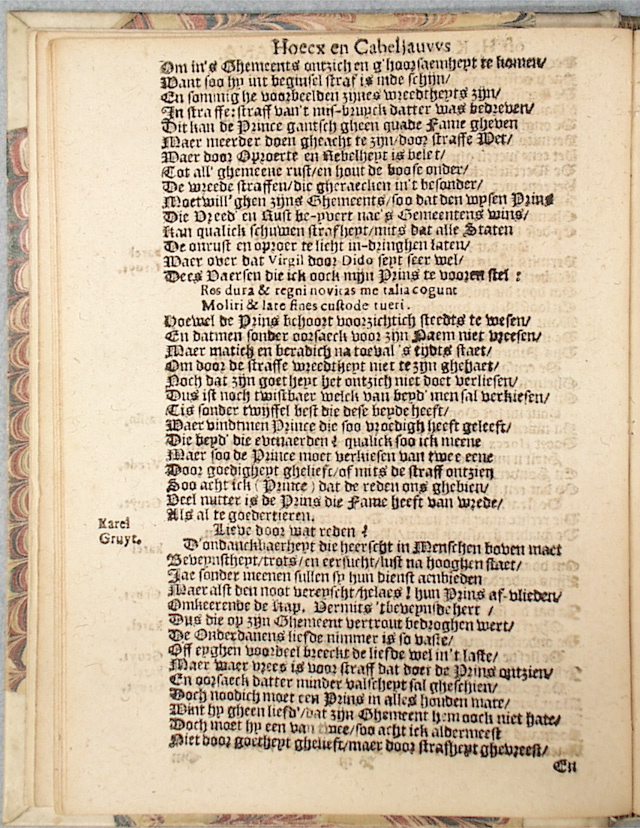 Hoecx en Cabeljauvvs
Om in's Ghemeents ontzich en g'hoorsaemheyt te komen/
Want soo hy uyt beginsel straf is inde schijn/
En sommighe voorbeelden zijnes wreedtheyts zijn/
In straffe: straff van't mis-bruyck datter was bedreven/
Dit kan de Prince gantsch gheen quade Fame gheven
Maer meerder doen gheacht te zijn/door straffe Wet/
Waer door Oproerte en Rebelheyt is belet/
Tot all' ghemeene rust/en hout de boose onder/
De wreede straffen/die gheraecken in't besonder/
Moetwill'ghen zijns Ghemeents/soo dat den wysen Prins
Die Vreed' en Rust be-yvert nae's Gemeentens wins/
Kan qualick schuwen strafheyt/mits dat alle Staten
De onrust en oproer te licht in-dringhen laten/
Waer over dat Virgil door Dido seyt seer wel/
Dees Vaersen die ick oock mijn Prins te vooren stel:
Res dura & regni novitas me talia cogunt
Moliri & late fines custode tueri.
Hoewel de Prins behoort voorzichtich steedts te wesen/
En datmen sonder oorsaeck voor zijn Naem niet vreesen/
Maer matich en beradich na toeval 's tijdts staet/
Om door de straffe wreedtheyt niet te zijn ghehaet/
Noch dat zijn goetheyt het ontzich niet doet verliesen/
Dus ist noch twistbaer welck van beyd' men sal verkiesen/
Tis sonder twijffel best die dese beyde heeft/
Maer vindtmen Prince die soo vroedigh heeft geleeft/
Die beyd' die evenaerden? qualick soo ick meene
Maer soo de Prince moet verkiesen van twee eene
Door goedigheyt ghelieft/of mits de straff ontzien
Soo acht ick (Prince) dat de reden ons ghebien/
Veel nutter is de Prins die Fame heeft van wrede/
Als al te goedertieren.
Lieve door wat reden?
Karel
Gruyt.
D'ondanckbaerheyt die heerscht in Menschen boven maet
Geveynstheyt/trots/en eersucht/lust na hooghen staet/
Jae sonder meenen sullen sy hun dienst aenbieden
Maer alst den noot vereyscht/helaes! hun Prins af-vlieden/
Omkeerende de Kap. Vermits 't beveynsde hert /
Dus die op zijn Ghemeent vertrout bedroghen wert/
De Onderdanens liefde nimmer is so vaste/
Off eyghen voordeel breeckt de liefde wel in't laste/
Maer waer vrees is voor straff dat doet de Prins ontzien/
En oorsaeck datter minder valscheyt sal gheschien/
Doch noodich moet een Prins in alles houden mate/
Wint hy gheen liefd'/dat zijn Ghemeent hem oock niet hate/
Doch moet hy een van twee/soo acht ick aldermeest
Niet door goetheyt ghelieft/maer door strafheyt ghevreest/
En